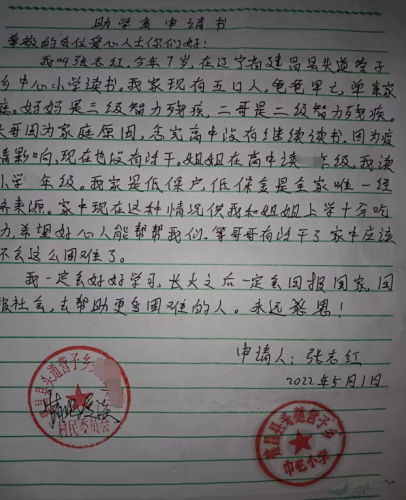 助学金申请书
尊敬的各位爱心人士你们好：
我叫张志红，今年7岁，在辽宁省建昌县头道营子
乡中心小学读书。我家现有五口人，爸爸早亡，单亲家
庭。妈妈是三级智力残疾，二哥是二级智力残疾。
大哥因为家庭原因，念完高中没有继续读书，因为疫
情影响，现在也没有活干。姐姐在高中读 年级，我读
小学 年级。我家是低保户，低保金是全家唯一经
济来源。家中现在这种情况供我和姐姐上学十分吃
力，希望好心人能帮帮我们，等哥哥有活干了家中应该
不会这么困难了。
我一定会好好学习，长大之后一定会回报国家，回
报社会，去帮助更多困难的人。永远感恩！
申请人：张志红
2022年5月1日
建昌县头道营子乡
村民委员会
情况属实
建昌县头道营子乡
中心小学